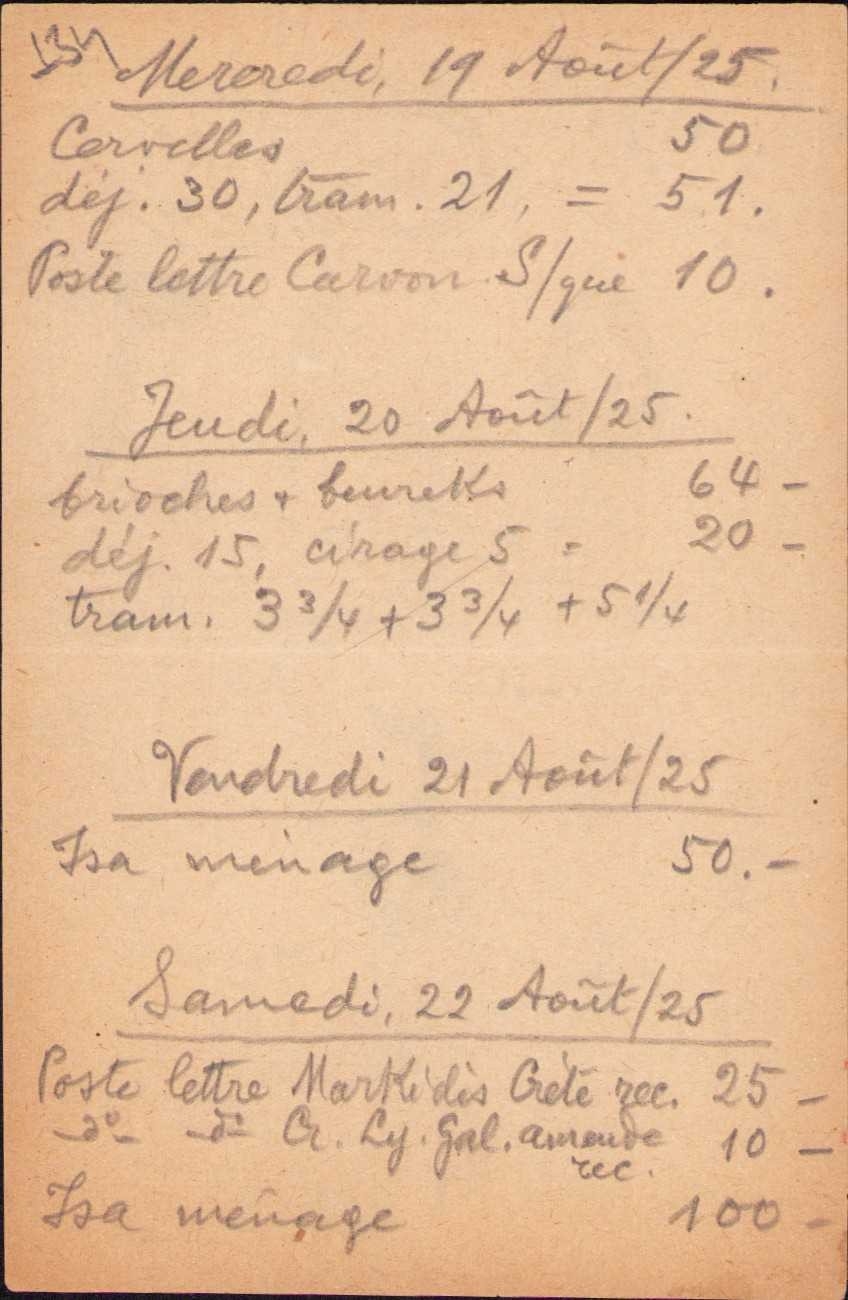 134
Mercredi, 19 Août/25.
Cervelles 50
déj. 30, tram. 21, = 51.
Poste lettre Carvon S/que 10.
Jeudi, 20 Août/25.
brioches + beureks 64 -
déj. 15, cirage 5 = 20 -
tram. 3 3/4 + 3 3/4 + 5 1/4
Vendredi 21 Août/25
Isa ménage 50.-
Samedi, 22 Août/25
Poste lettre Markidis Crète rec. 25 -
-d°- -d°- Cr. Ly. Gal. amende 10 -
rec.
Isa ménage 100 -